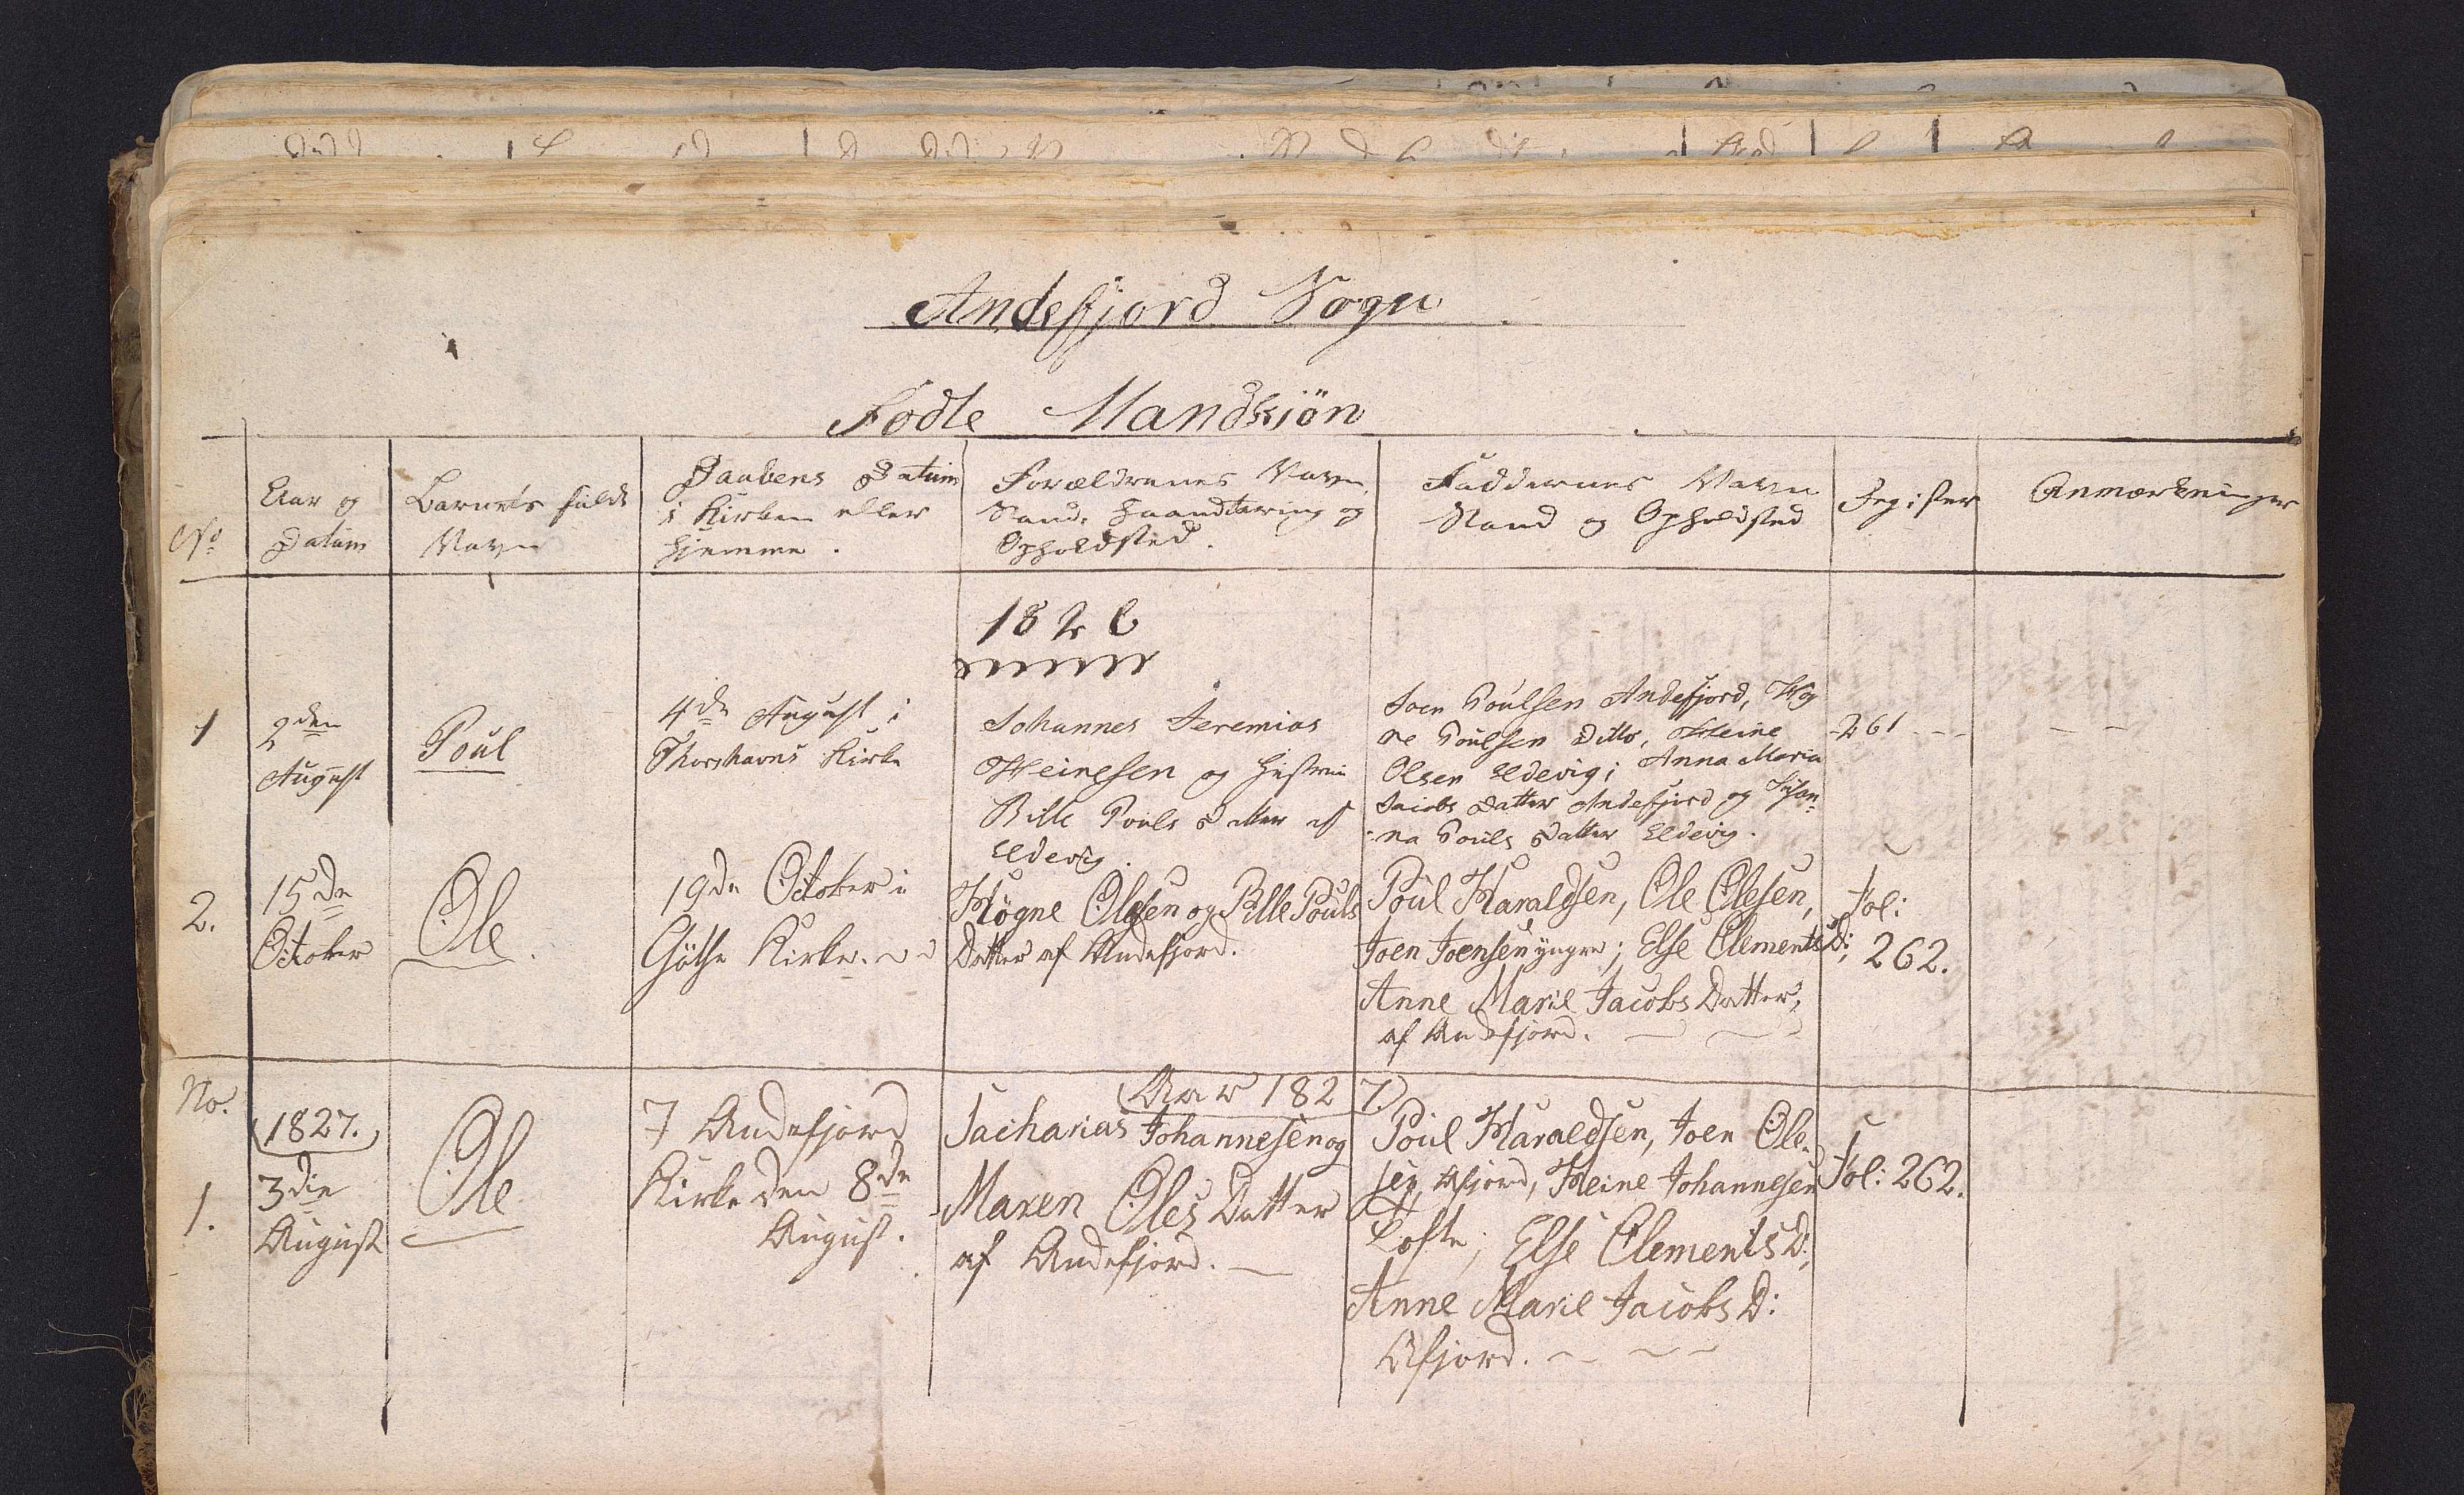 Andefjord Sogn
Fødte Mandkiön
No
Aar og
Datum
Barnets fulde
Navn
Daabens Datum
i Kirken eller
hjemme.
Forældrenes Navn,
Stand, Haandtering og
Opholdsted.
Faddernes Navn
Stand og Opholdsted
Anmærkninger
1826
1
2den
August
Poul
4de August i
Thorshavns Kirke
Johannes Jeremias
Heinesen og Hustrue
Bille Pouls Datter af
Eldevig.
Joen Poulsen Andefjord, Høg
ne Poulsen Ditto, Heine
Olsen Eldevig; Anna Maria
Jacobs Datter Andefjord og Susan-
-na Pouls Datter Eldevig.
261
2.
15de
October
Ole.
19de October i
Göthe Kirke.
Högne Olesen og Bille Pouls
Datter af Andefjord.
Poul Haraldsen, Ole Olesen,
Joen Joensen yngre; Else Clements D:,
Anne Marie Jacobs Datter,
af Andefjord.
Fol:
262.
No.
Aar 1827.
1827.
1.
3die
August
Ole
I Andefjord
Kirke den 8de
August.
Sacharias Johannesen og
Maren Oles Datter
af Andefjord.
Poul Haraldsen, Joen Ole-
sen, Afjord, Heine Johannesen
Tofte; Else Clements D:,
Anne Marie Jacobs D:
Afjord.
Fol: 262.